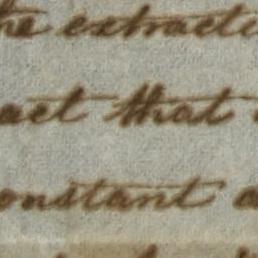 the extracti
act that
onstant a